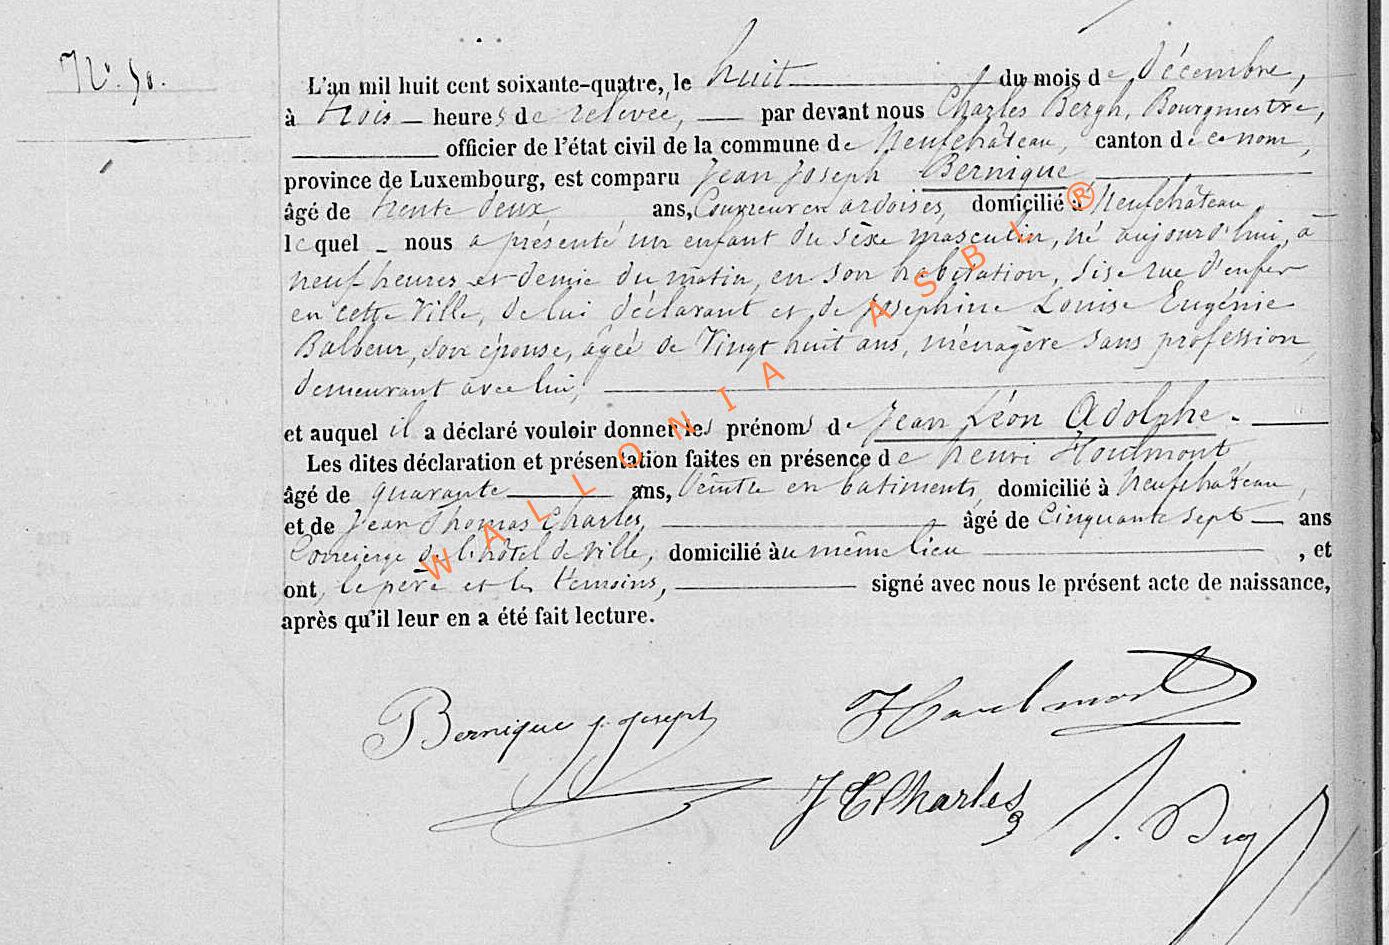 N° 50.
L'an mil huit cent soixante-quatre, le huit du mois de décembre,
à trois heures de relevée, par devant nous Charles Bergh, Bourgmestre,
officier de l'état civil de la commune de Neufchâteau, canton de ce nom,
province de Luxembourg, est comparu Jean Joseph Bernique
âgé de trente deux ans, Couvreur en ardoises, domicilié à Neufchâteau,
lequel nous a présenté un enfant du sèxe masculin, né aujourd'hui, à
neuf heures et demie du matin, en son habitation, sise rue d'enfer
en cette Ville, de lui déclarant et de Josephine Louise Eugénie
Balbeur, son épouse, âgée de Vingt huit ans, ménagère sans profession,
demeurant avec lui,
et auquel il a déclaré vouloir donner les prénoms de Jean Léon Adolphe.
Les dites déclaration et présentation faites en présence de henri Houlmont
âgé de quarante ans, Peintre en batiments, domicilié à Neufchâteau,
et de Jean Thomas Charles, âgé de Cinquante sept ans
Concierge de l'hôtel de Ville, domicilié au même lieu , et
ont, le père et les témoins, signé avec nous le présent acte de naissance,
après qu'il leur en a été fait lecture.
Bernique j. joseph
Houlmont
J T Charles
WALLONIA ASBL ®